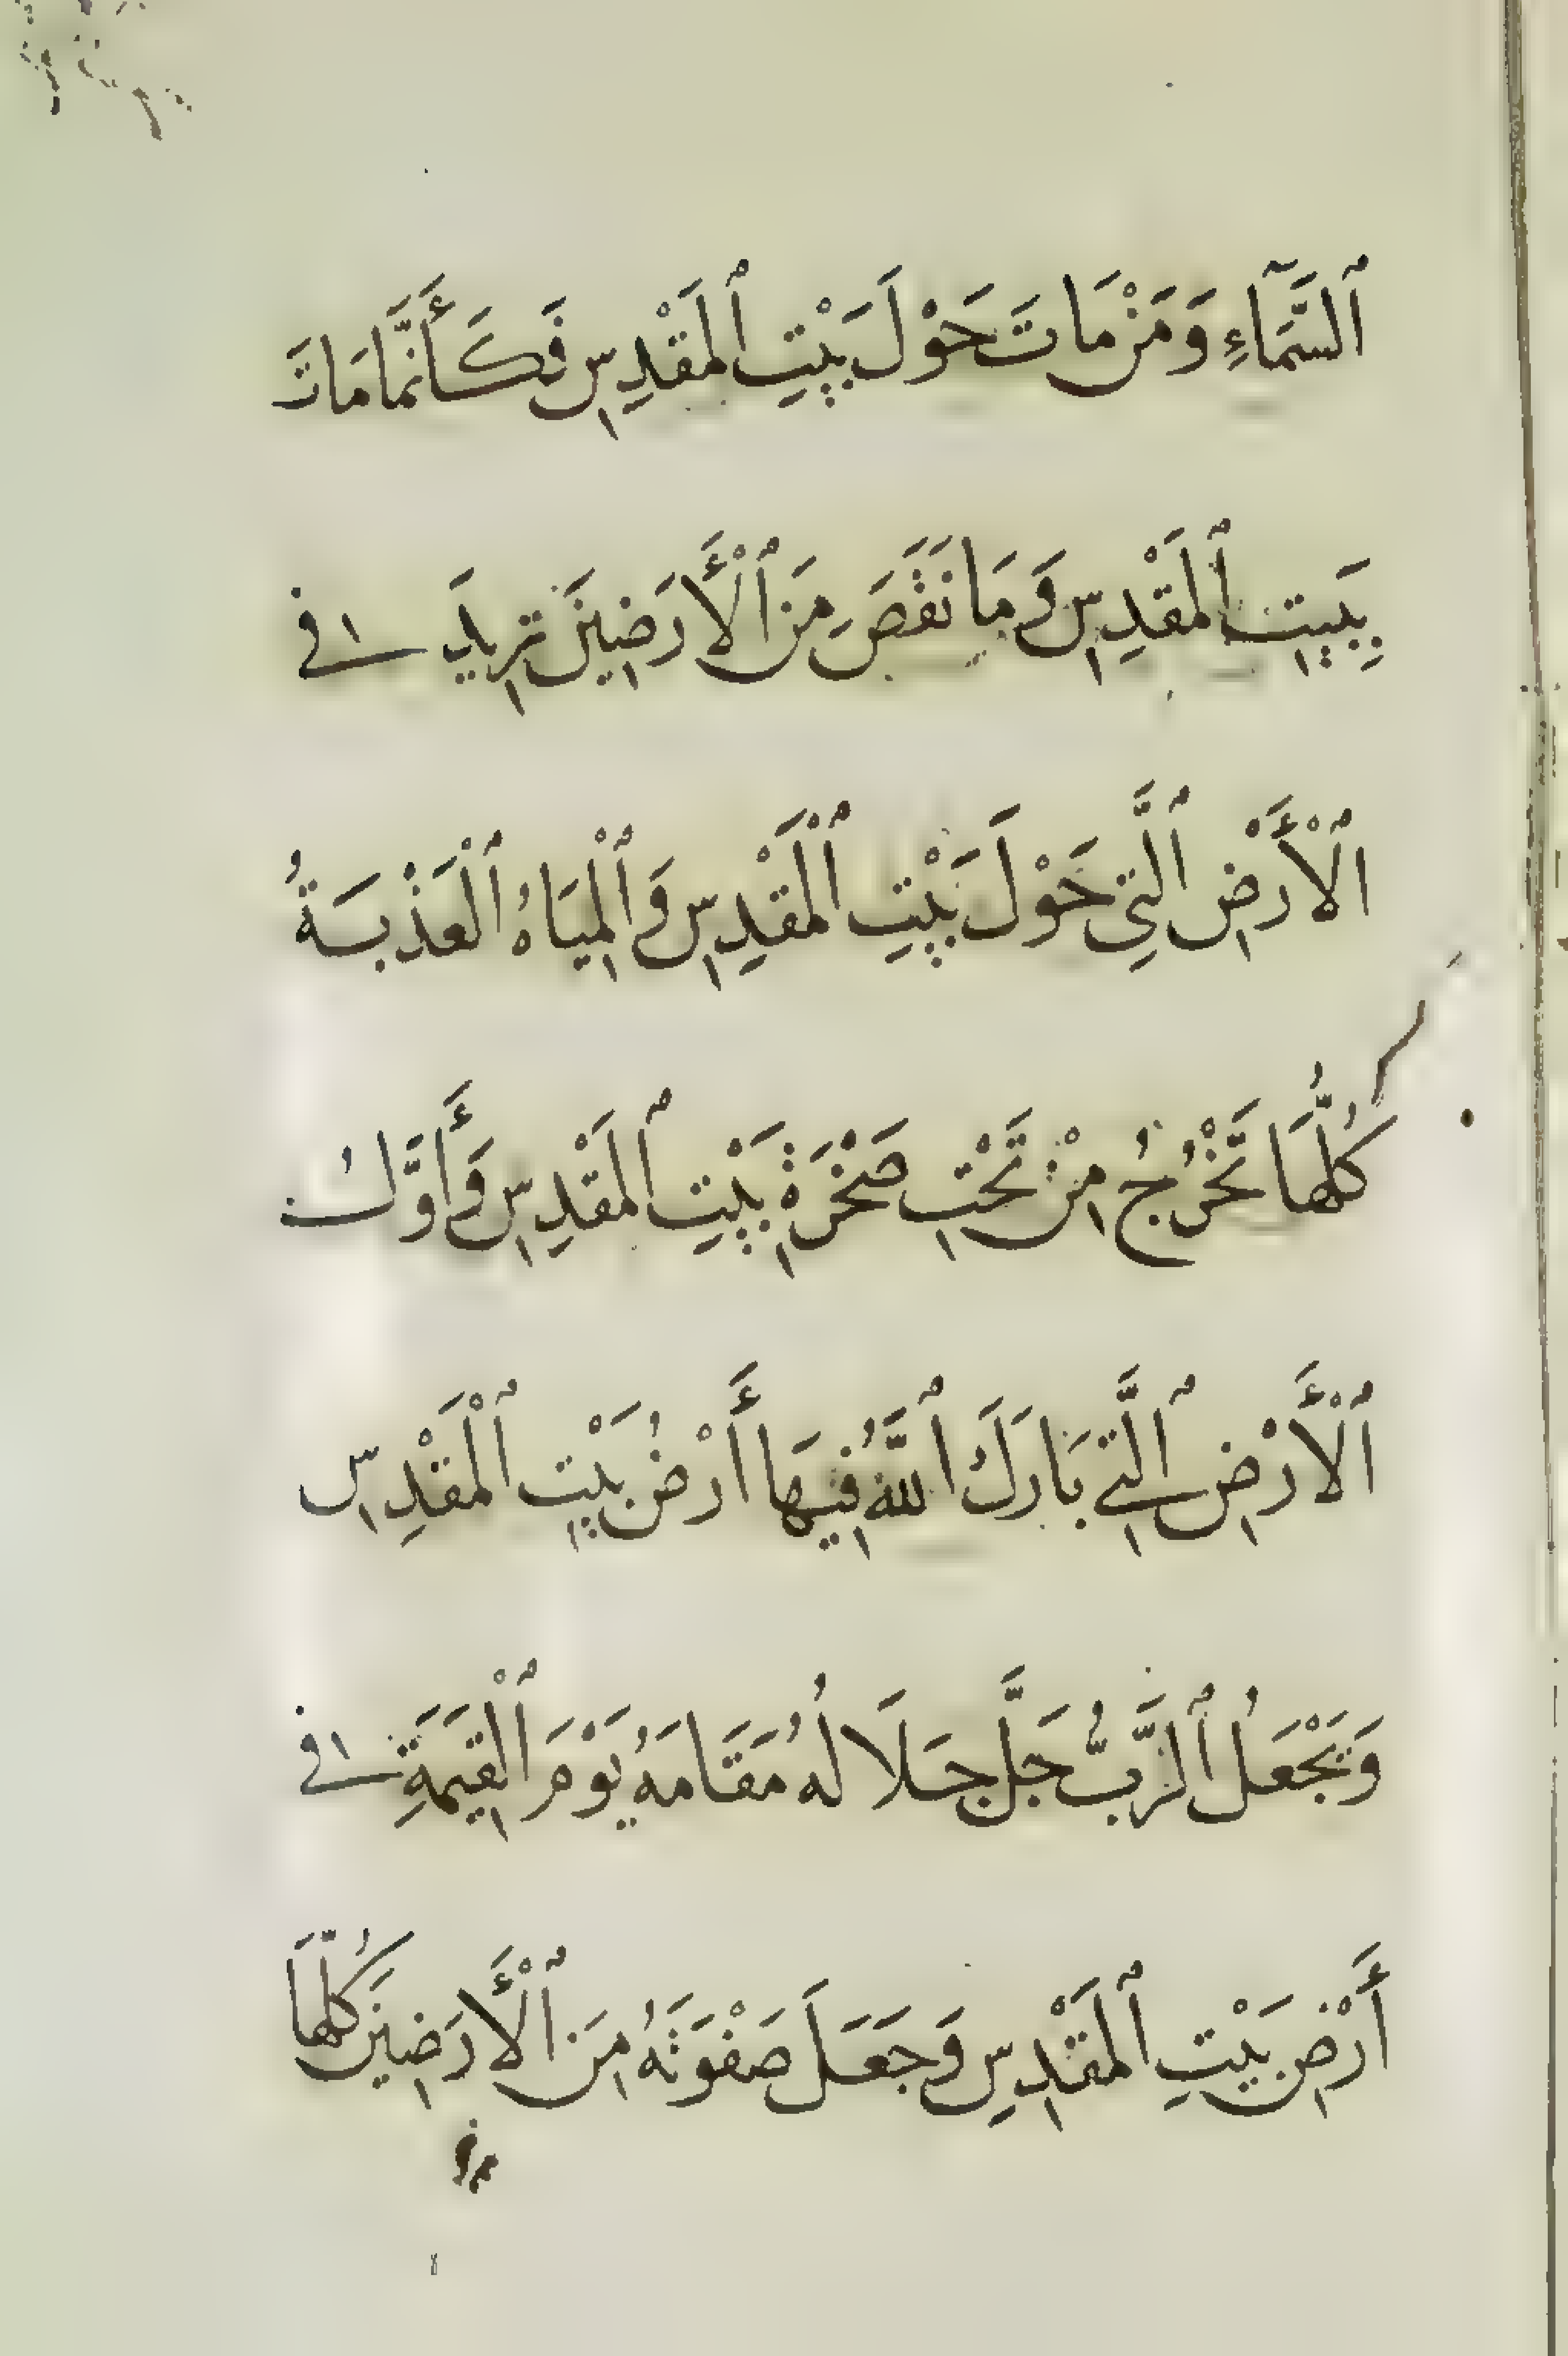 ٱلسَّمَآءِ وَمَنْ مَاتَ حَوْلَ بَيْتِ ٱلمَقْدِسِ فَكَأَنَّمَا مَاتَ
بِبَيتِ ٱلمَقْدِسِ وَمَا نَقَصَ مِنَ ٱلْأَرَضِينَ تزيدَ فِي
ٱلْأَرْضِ ٱلَّتِي حَوْلَ بَيْتِ ٱلْمَقْدِسِ وَٱلْمِيَاهُ ٱلْعَذْبَةُ
كُلُّهَا تَخْرُجُ مِنْ تَحْتِ صَخْرَةِ بَيْتِ ٱلمَقْدِسِ وَأَوَّلُ
ٱلْأَرْضِ ٱلَّتِي بَارَكَ ٱللَّهُ فِيهَا أَرْضُ بَيْتِ ٱلْمَقْدِسِ
وَيَجْعَلُ ٱلرَّبُّ جَلَّ جَلَالُهُ مُقَامَهُ يَوْمَ ٱلْقِيمَةِ فِي
أَرْضِ بَيْتِ ٱلمَقْدِسِ وَجَعَلَ صَفْوَتَهُ مِنَ ٱلْأَرَضِينَ كُلِّهَا